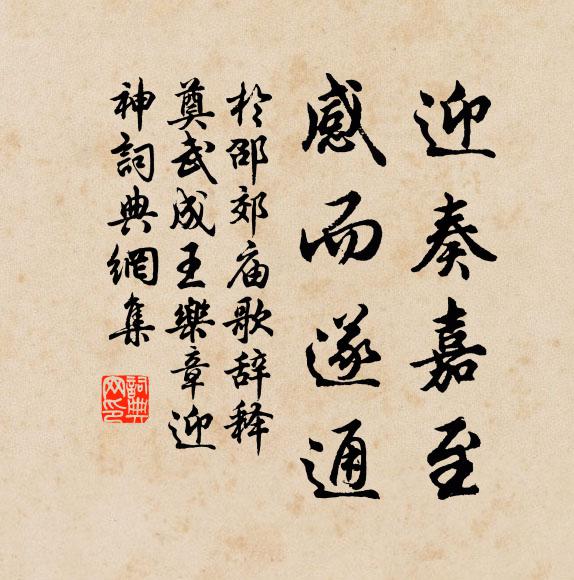 迎奏嘉至
感而遂通
於邵郊庙歌辞释
奠武成王樂章迎
神詞典網集
詞典网印